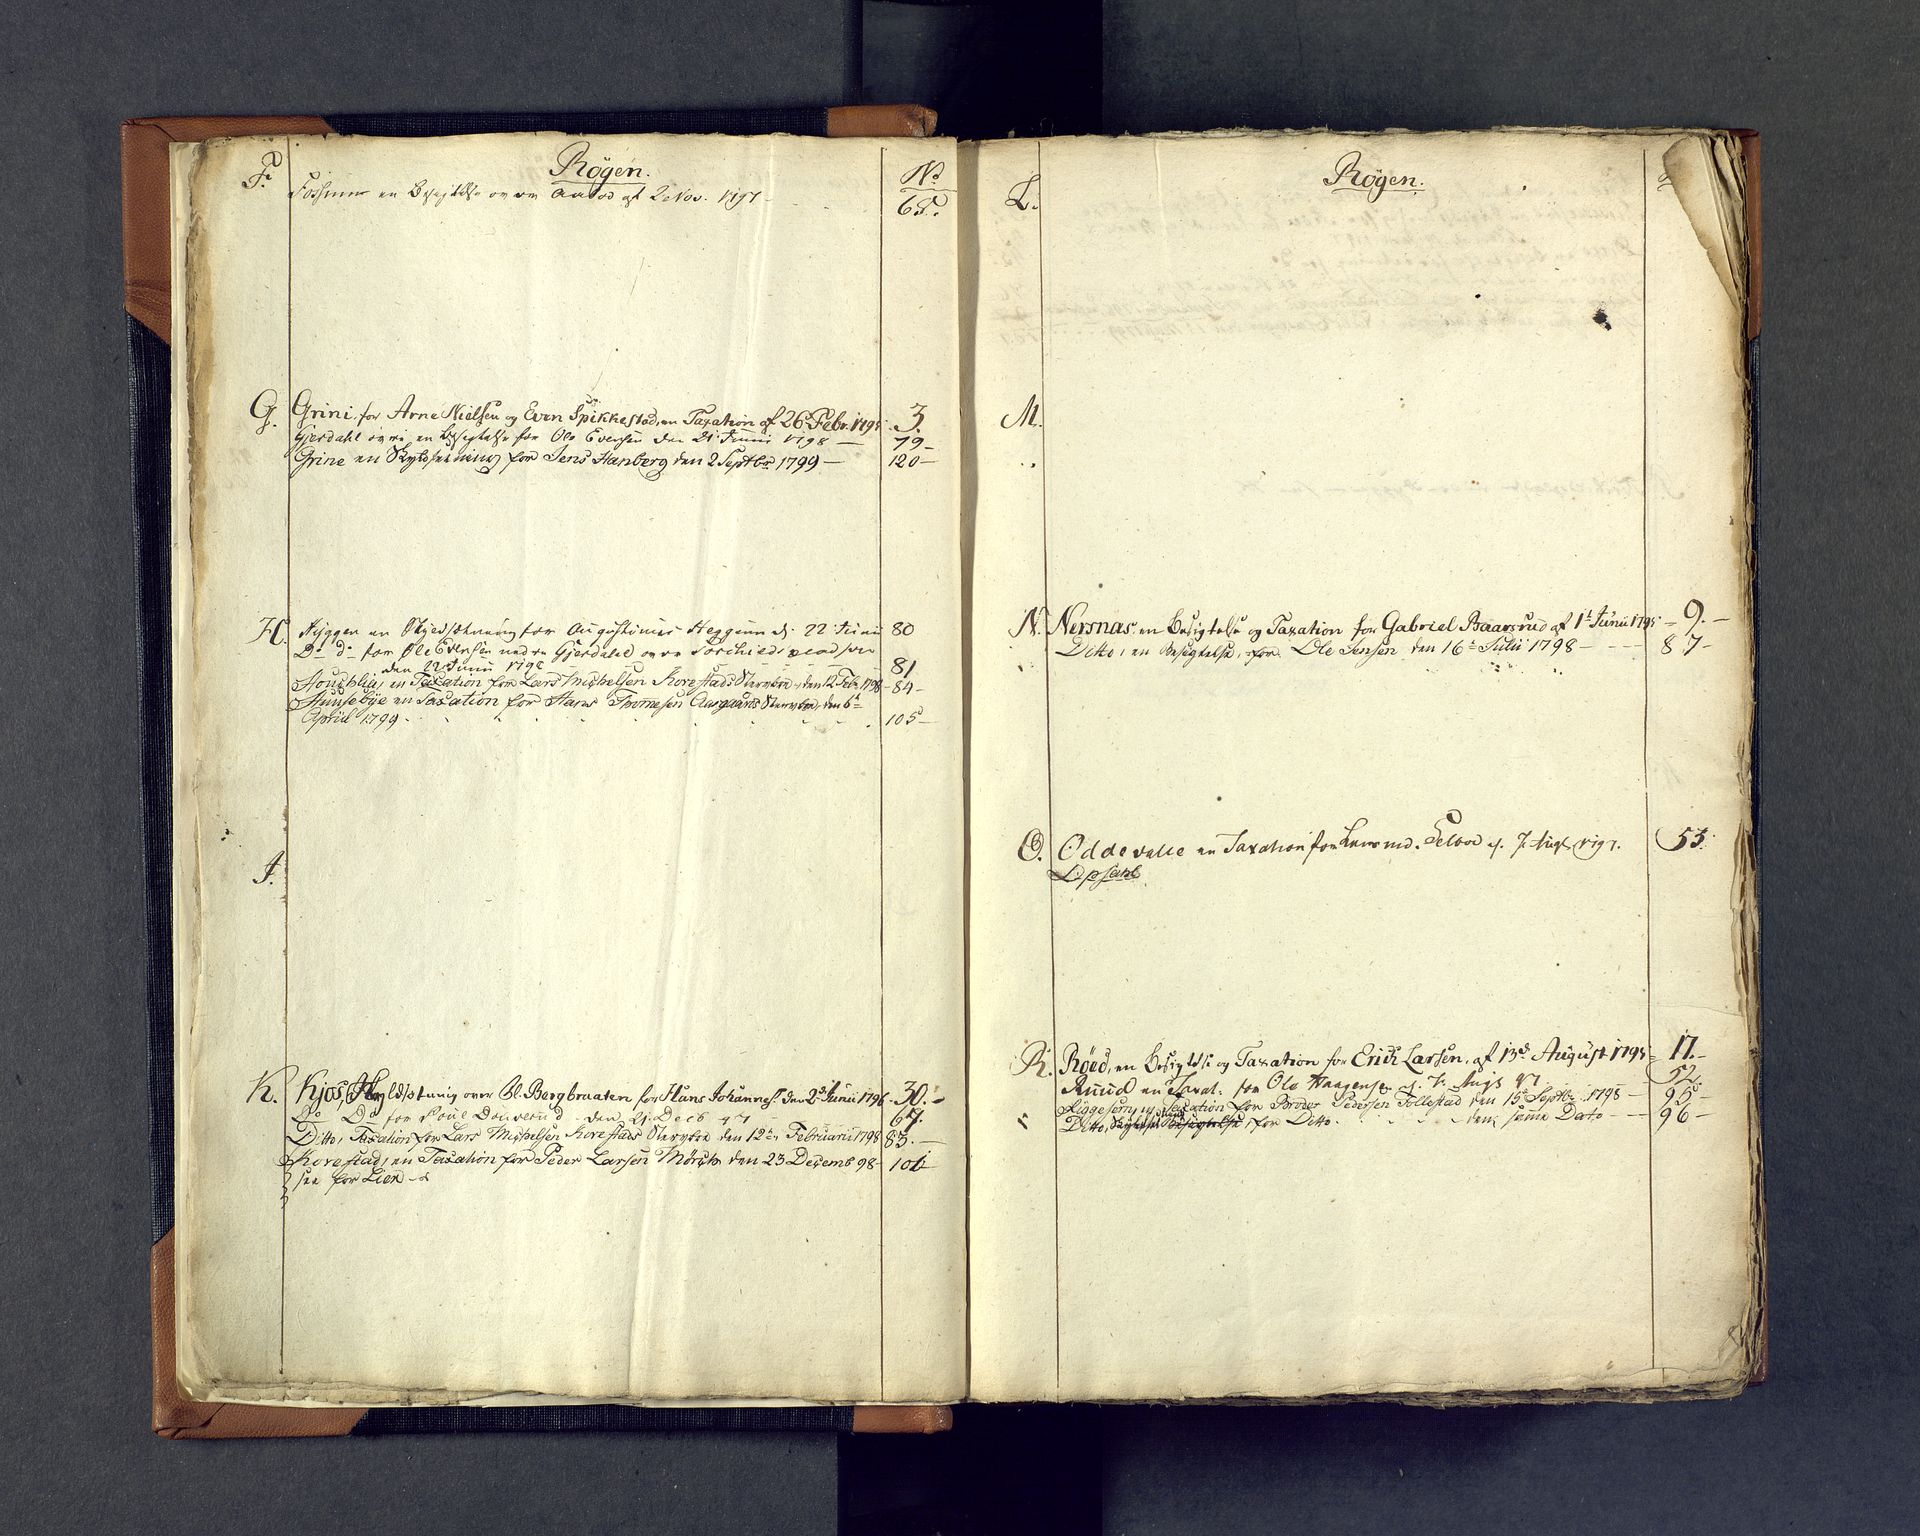 F. Røgen. No
Fossum en Besigtelse over AaVod af 2 Nov. 1797 65.
G. Grini, for Arne Nielsen og Even Spikkestad, en Taxation af 26. Febr. 1795 3.
Gjerdahl øvre en Besigtelse for Ole Evensen den 21 Junii 1798 — 79 —
Grine en Skyldsetning for Jens Hanberg den 2 Septbr 1799 — 120 —
H. Hyggen en Skyldsætning for Augustinus Heggum d. 22 Junii 80
Do do for Ole Evensen nedre Gjerdahl over
den 22 Junii 1798 81
en Taxation for Lars Michelsen Korestads Sterveboe, den 12 Feb. 1798 — 84 —
Hunsebye en Taxation for Hans Thomesen Aasgaards Sterveboe, den 6te
April 1799 105 —
I.
K. Kjos, Skyldsetning over Bl. Bergbraaten for Hans Johannes. den 2d Junii 1796 30. —
Do Do for Poul den 21 Decb 97 67.
Ditto, Taxation for Lars Michelsen Korestads Sterveboe den 12te Februarii 1798 83. —
Korestad, en Taxation for Peder Larsen Mørch den 23 Decemb 98 — 101
see for Lier
Røgen.
L.
M.
N. Nersnas. en Besigtelse og Taxation for Gabriel Baarsrud af 1t Junii 1795 — 9. —
Ditto, en Besigtelse, for Ole Jensen den 16te Julii 1798 — 87 —
O. Oddevalle en Taxation for d. 7 Aug 1797. 53.
Opsahl
R. Røed, en Besigtelse og Taxation for Erich Larsen, af 13d August 1795 17. —
Ruud en Taxat: for Ole Haagensen d. 7 Augs 97 52
Riggesery en Taxation for Broder Pedersen Follestad den 15 Septbr. 1798 — 95 —
Ditto, Besigtelse, for Ditto den samme Dato — 96 —